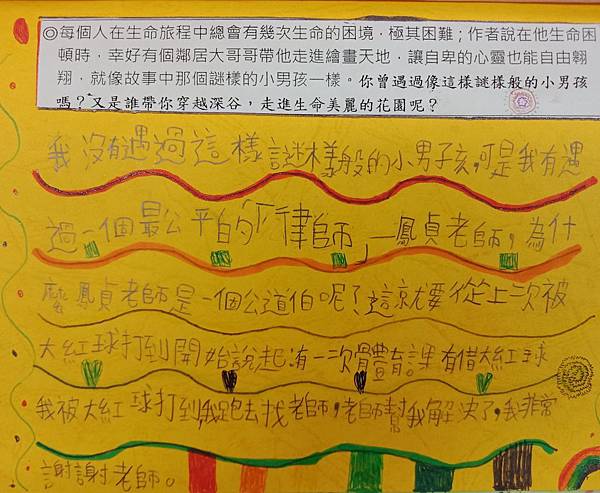 ◎每個人在生命旅程中總會有幾次生命的困境，極其困難；作者說在他生命困
頓時，幸好有個鄰居大哥哥帶他走進繪畫天地，讓自卑的心靈也能自由翱
翔，就像故事中那個謎樣的小男孩一樣。你曾遇過像這樣謎樣般的小男孩
嗎？又是誰帶你穿越深谷，走進生命美麗的花園呢？
我沒有遇過這樣謎樣般的小男孩，可是我有遇
過一個最公平的「律師」—鳳貞老師，為什
麼鳳貞老師是一個公道伯呢？這就要從上次被
大紅球打到開始說起，有一次體育課有借大紅球
我被大紅球打到，我跑去找老師，老師幫我解決了，我非常
謝謝老師。